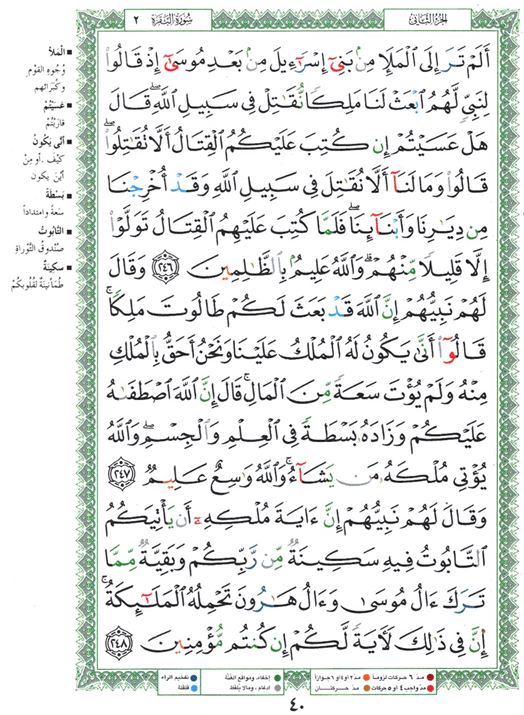 الجزء الثاني
سورة البقرة ٢
أَلَمْ تَرَ إِلَى ٱلْمَلَإِ مِنۢ بَنِىٓ إِسْرَٰٓءِيلَ مِنۢ بَعْدِ مُوسَىٰٓ إِذْ قَالُوا۟
لِنَبِىٍّ لَّهُمُ ٱبْعَثْ لَنَا مَلِكًا نُّقَٰتِلْ فِى سَبِيلِ ٱللَّهِ ۖ قَالَ
هَلْ عَسَيْتُمْ إِن كُتِبَ عَلَيْكُمُ ٱلْقِتَالُ أَلَّا تُقَٰتِلُوا۟ ۖ
قَالُوا۟ وَمَا لَنَآ أَلَّا نُقَٰتِلَ فِى سَبِيلِ ٱللَّهِ وَقَدْ أُخْرِجْنَا
مِن دِيَٰرِنَا وَأَبْنَآئِنَا ۖ فَلَمَّا كُتِبَ عَلَيْهِمُ ٱلْقِتَالُ تَوَلَّوْا۟
إِلَّا قَلِيلًا مِّنْهُمْ ۗ وَٱللَّهُ عَلِيمٌۢ بِٱلظَّٰلِمِينَ ٢٤٦ وَقَالَ
لَهُمْ نَبِيُّهُمْ إِنَّ ٱللَّهَ قَدْ بَعَثَ لَكُمْ طَالُوتَ مَلِكًا ۚ
قَالُوٓا۟ أَنَّىٰ يَكُونُ لَهُ ٱلْمُلْكُ عَلَيْنَا وَنَحْنُ أَحَقُّ بِٱلْمُلْكِ
مِنْهُ وَلَمْ يُؤْتَ سَعَةً مِّنَ ٱلْمَالِ ۚ قَالَ إِنَّ ٱللَّهَ ٱصْطَفَىٰهُ
عَلَيْكُمْ وَزَادَهُۥ بَسْطَةً فِى ٱلْعِلْمِ وَٱلْجِسْمِ ۖ وَٱللَّهُ
يُؤْتِى مُلْكَهُۥ مَن يَشَآءُ ۚ وَٱللَّهُ وَٰسِعٌ عَلِيمٌ ٢٤٧
وَقَالَ لَهُمْ نَبِيُّهُمْ إِنَّ ءَايَةَ مُلْكِهِۦٓ أَن يَأْتِيَكُمُ
ٱلتَّابُوتُ فِيهِ سَكِينَةٌ مِّن رَّبِّكُمْ وَبَقِيَّةٌ مِّمَّا
تَرَكَ ءَالُ مُوسَىٰ وَءَالُ هَٰرُونَ تَحْمِلُهُ ٱلْمَلَٰٓئِكَةُ ۚ
إِنَّ فِى ذَٰلِكَ لَءَايَةً لَّكُمْ إِن كُنتُم مُّؤْمِنِينَ ٢٤٨
■ الملأ
وجوه القوم
وكبرائهم
■ عسيتم
قاربتم
■ أنى يكون
كيف، أو من
أين يكون
■ بسطة
سعة وامتدادا
■ التابوت
صندوق التوراة
■ سكينة
طمأنينة لقلوبكم
مدّ ٦ حركات لزوماً ● مدّ ٢ أو ٤ أو ٦ جوازاً ● إخفاء، ومواقع الغُنَّة ● تفخيم الراء
مدّ واجب ٤ أو ٥ حركات ● مدّ حركتان ● إدغام، وما لا يُلفَظ ● قلقلة
٤٠